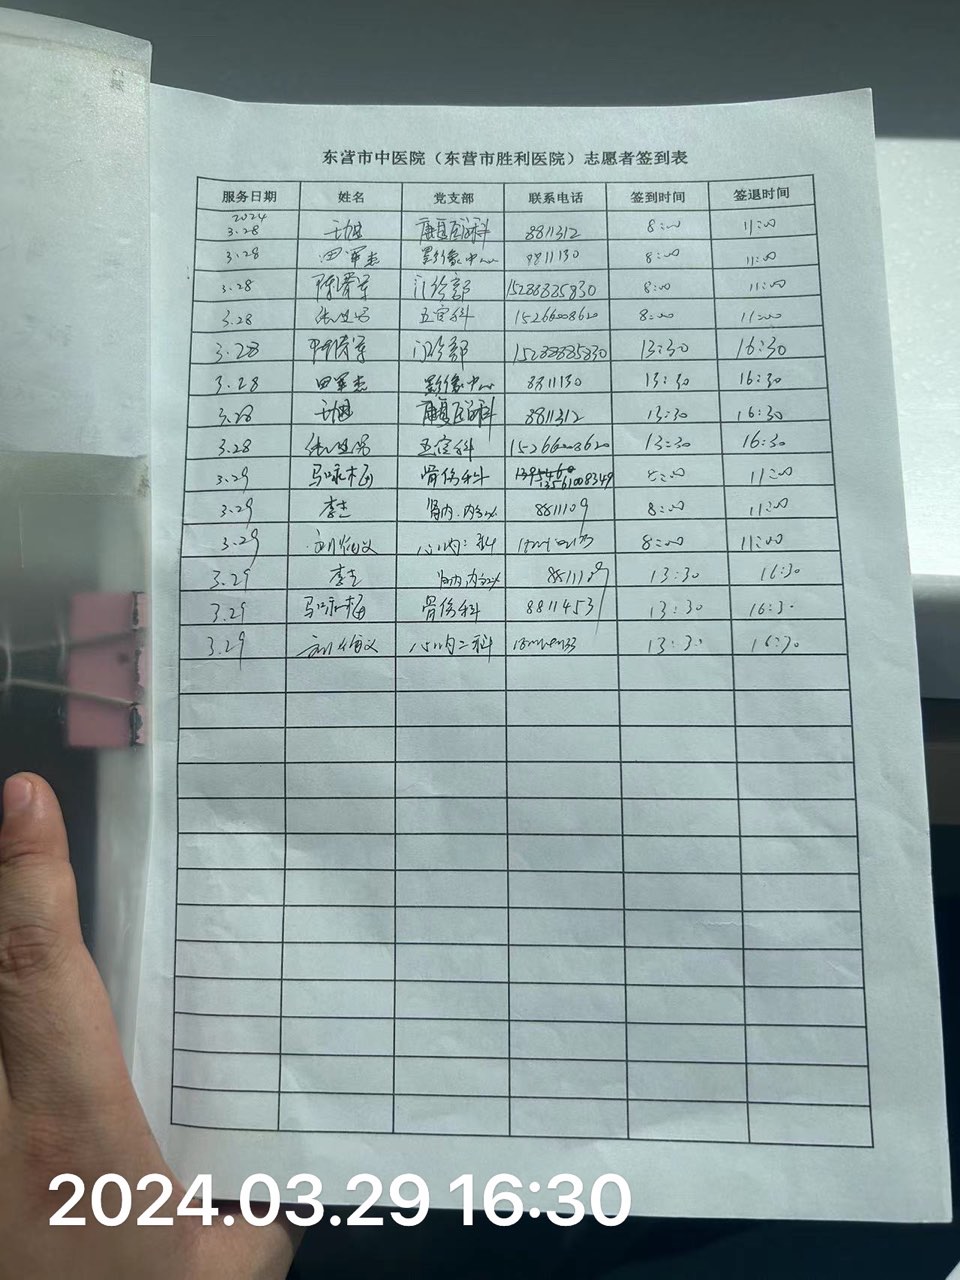 东营市中医院（东营市胜利医院）志愿者签到表
服务日期 姓名 党支部 联系电话 签到时间 签退时间
2024
3.28 康复医学科 8811312 8:00 11:00
3.28 田军志 影像中心 8811130 8:00 11:00
3.28 门诊部 15288885830 8:00 11:00
3.28 五官科 15266008620 8:00 11:00
3.28 门诊部 15288885830 13:30 16:30
3.28 田军志 影像中心 8811130 13:30 16:30
3.28 康复医学科 8811312 13:30 16:30
3.28 五官科 15266008620 13:30 16:30
3.29 马咏梅 骨伤科 13561008349 8:00 11:00
3.29 李志 肾内.内分泌 8811109 8:00 11:00
3.29 心内二科 8:00 11:00
3.29 李志 肾内内分泌 8811109 13:30 16:30
3.29 马咏梅 骨伤科 8811453 13:30 16:30
3.29 心内二科 13:30 16:30
2024.03.29 16:30